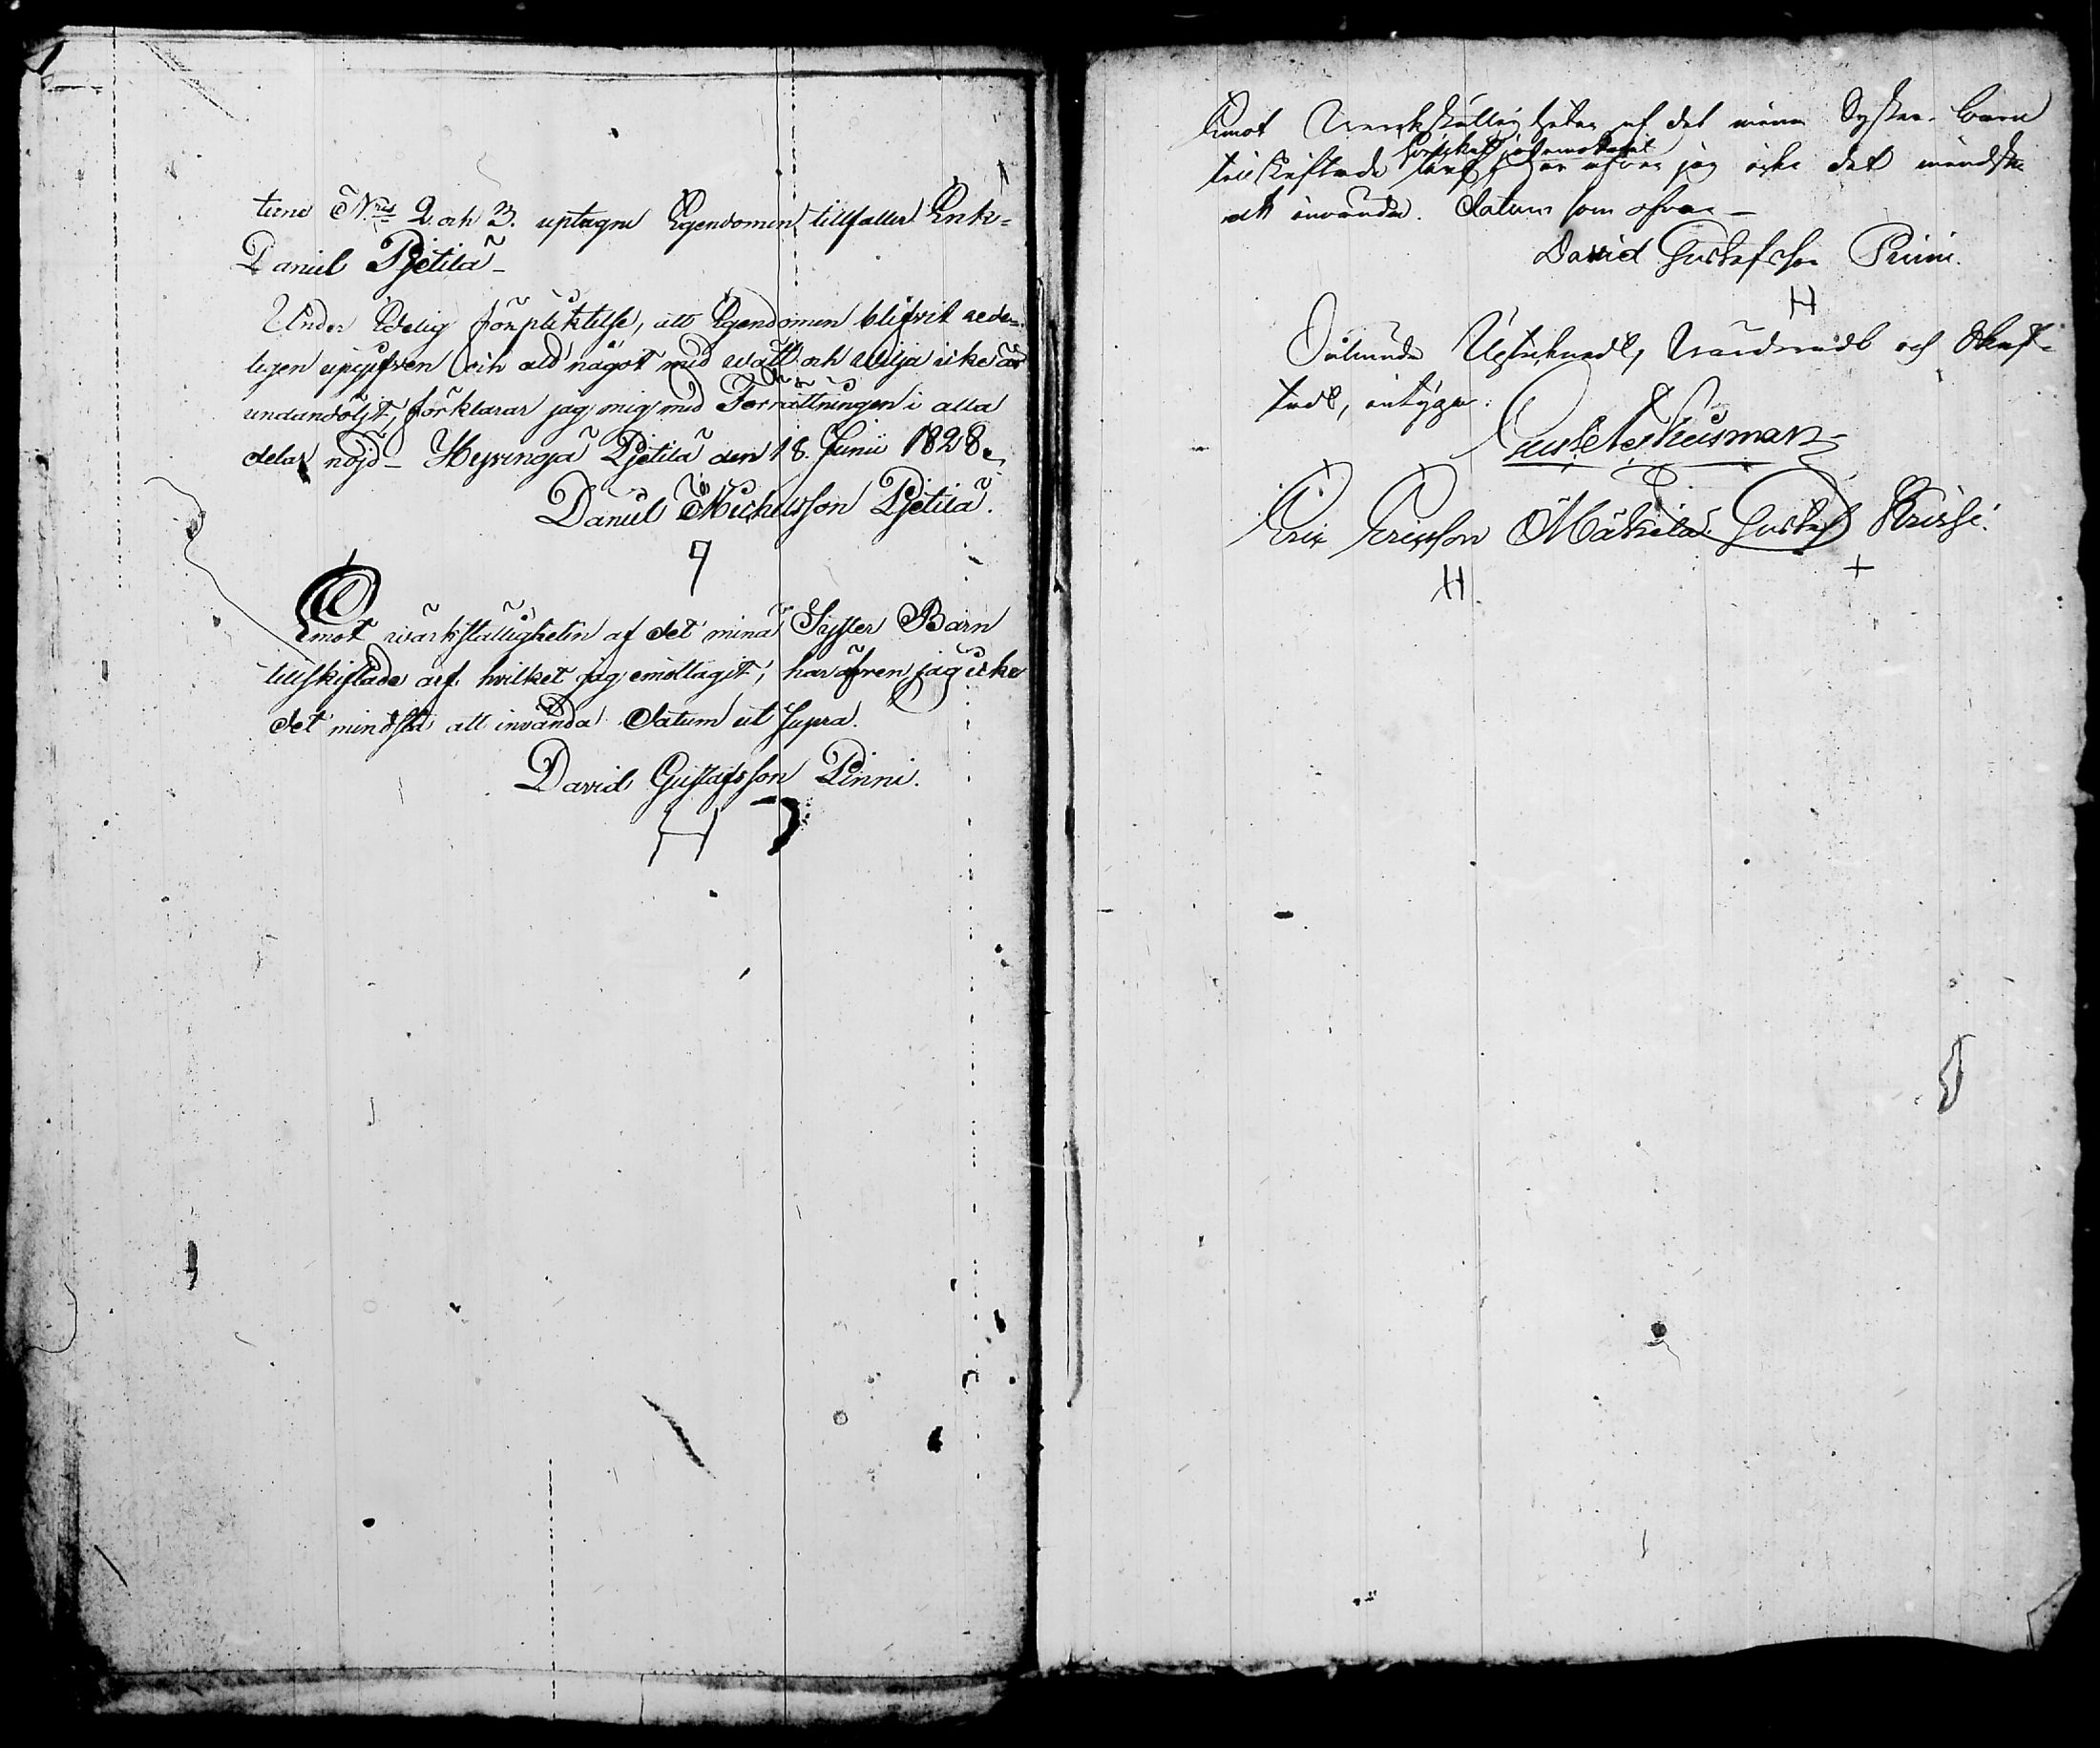 terne N:ris 2. och 3. uptagne Egendomen tillfaller Enk-
Daniel Pjetilä_
Under Edelig förpliktelse, att Egendomen blifvit rede-
ligen uppgifven och att något med wett och wilja icke är
undandöljt, förklarar jag mig med Förrättningen i alla
delar nöjd_ Hyvingä Pjetilä den 18. Junii 1828.
Daniel Michelsson Pjetilä.
Emot wärkställigheten af det mina Syster Barn
tillskiftade arf. hvilket jag emottagit, har äfven jag icke
det mindsta att inwända. Datum ut supra.
David Gustafsson Pinni.
H
Emot Werkställigheten af det mina Syster barn
hvilket jag emottagit
tillskiftade arf har äfven jag icke det mindsta
att inwända. Datum som ofvan_
David Gustafsson Pinni.
H
Sålunda Uptecknadt, Wärderadt och Skif-
tadt, intyga.
Gust Husman
Eric Ericsson Mäkelä Gustaf
H +